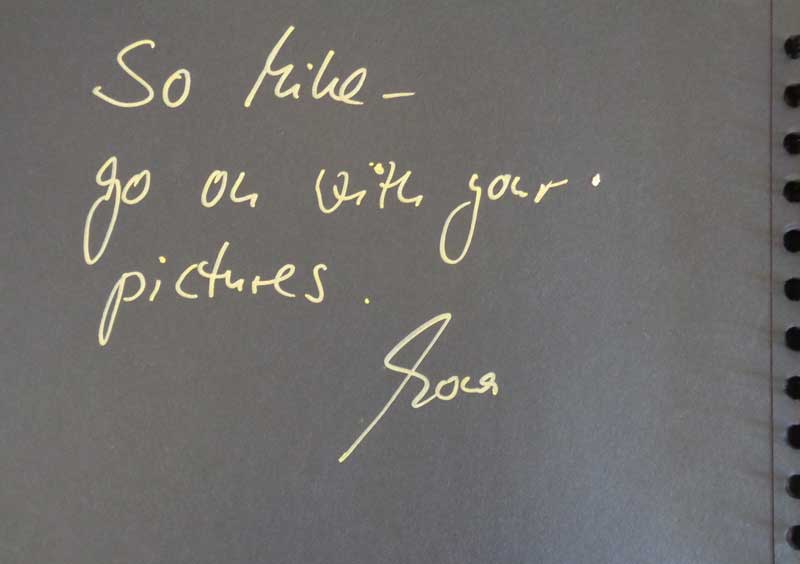 So Mike –
go on with your
pictures.